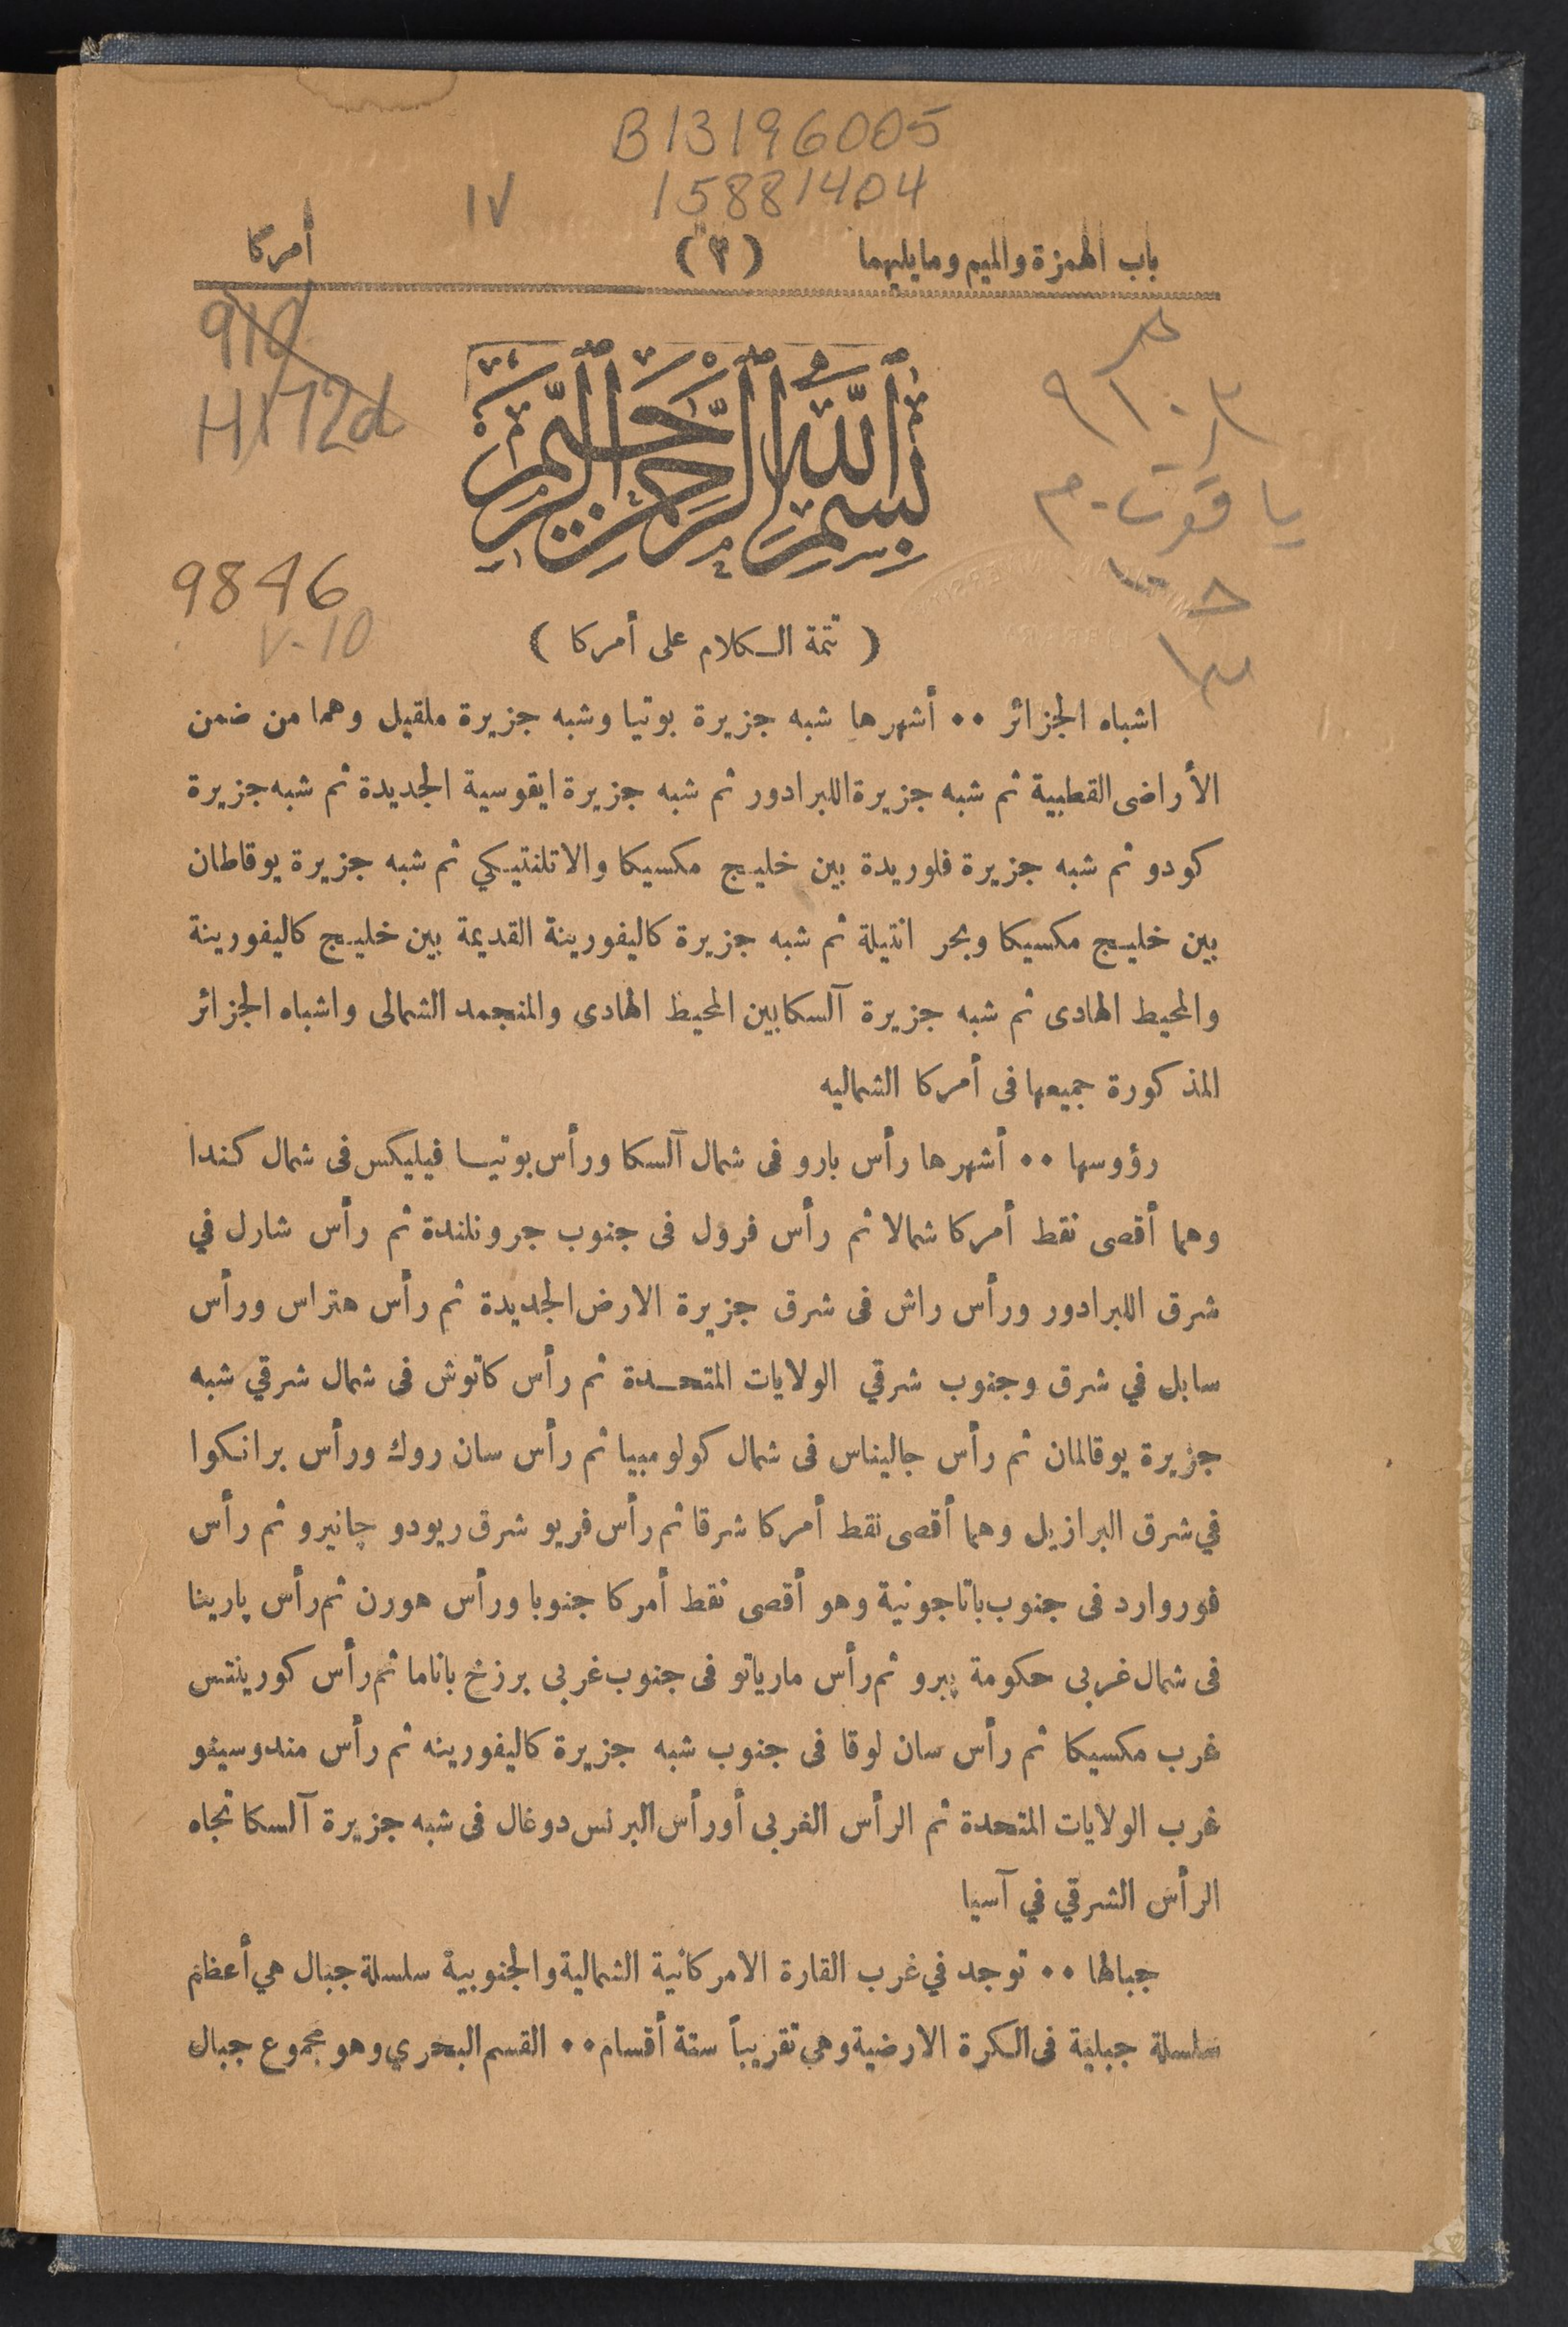 B13196005
15881404
١٧
باب الهمزة والميم ومايليهما (٣) أمركا
910
H172d
٩١٠٫٣
ياقوت-م
9846
v.10
بسم الله الرحمن الرحيم
( تتمة الكلام على أمركا )
اشباه الجزائر ٠٠ أشهرها شبه جزيرة بوتيا وشبه جزيرة ملقيل وهما من ضمن
الأراضى القطبية ثم شبه جزيرة اللبرادور ثم شبه جزيرة ايقوسية الجديدة ثم شبه جزيرة
كودو ثم شبه جزيرة فلوريدة بين خليج مكسيكا والاتلنتيكي ثم شبه جزيرة يوقاطان
بين خليج مكسيكا وبحر انتيلة ثم شبه جزيرة كاليفورينة القديمة بين خليج كاليفورينة
والمحيط الهادى ثم شبه جزيرة آلسكا بين المحيط الهادى والمنجمد الشمالى واشباه الجزائر
المذكورة جميعها فى أمركا الشماليه
رؤوسها ٠٠ أشهرها رأس بارو فى شمال آلسكا ورأس بوتيا فيليكس فى شمال كندا
وهما أقصى نقط أمركا شمالا ثم رأس فرول فى جنوب جرونلندة ثم رأس شارل في
شرق اللبرادور ورأس راش فى شرق جزيرة الارض الجديدة ثم رأس هتراس ورأس
سابل في شرق وجنوب شرقي الولايات المتحدة ثم رأس كاتوش فى شمال شرقي شبه
جزيرة يوقالمان ثم رأس جاليناس فى شمال كولومبيا ثم رأس سان روك ورأس برانكوا
في شرق البرازيل وهما أقصى نقط أمركا شرقا ثم رأس فريو شرق ريودو چانيرو ثم رأس
فوروارد فى جنوب باتاجونية وهو أقصى نقط أمركا جنوبا ورأس هورن ثم رأس پارينا
فى شمال غربى حكومة پيرو ثم رأس مارياتو فى جنوب غربى برزخ باناما ثم رأس كورينتس
غرب مكسيكا ثم رأس سان لوقا فى جنوب شبه جزيرة كاليفورينه ثم رأس مندوسينو
غرب الولايات المتحدة ثم الرأس الغربى أو رأس البرنس دوغال فى شبه جزيرة آلسكا تجاه
الرأس الشرقي في آسيا
جبالها ٠٠ توجد في غرب القارة الامركانية الشمالية والجنوبية سلسلة جبال هي أعظم
سلسلة جبلية فى الكرة الارضية وهي تقريباً ستة أقسام ٠٠ القسم البحري وهو مجموع جبال